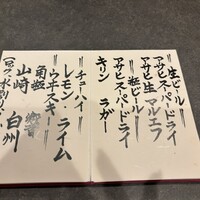 =生ビール=
アサヒスーパードライ
アサヒ生 マルエフ
=瓶ビール=
アサヒスーパードライ
キリン ラガー
=チューハイ=
レモン・ライム
=ウヰスキー=
角瓶 響
山崎 白州